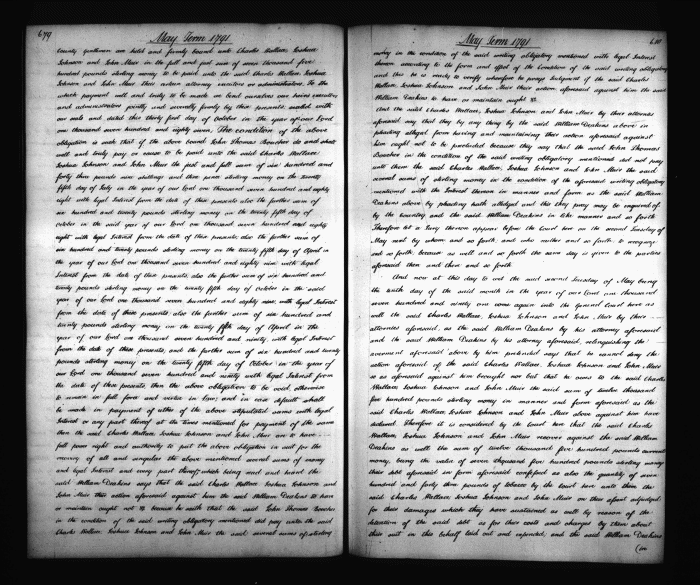 679
May Term 1791
County gentlemen are held and firmly bound unto Charles Wallace, Joshua
Johnson and John Muir in the full and just sum of seven thousand five
hundred pounds sterling money to be paid unto the said Charles Wallace, Joshua
Johnson and John Muir their certain attorney executors or administrators. To the
which payment well and truly to be made we bind ourselves our heirs executors
and administrators jointly and severally firmly by these presents sealed with
our seals and dated this thirty first day of October in the year of our Lord
one thousand seven hundred and eighty seven. The condition of the above
obligation is such that if the above bound John Thomas Boucher do and shall
well and truly pay or cause to be paid unto the said Charles Wallace
Joshua Johnson and John Muir the just and full sum of six hundred and
forty three pounds nine shillings and three pence sterling money on the twenty
fifth day of July in the year of our Lord one thousand seven hundred and eighty
eight with legal Interest from the date of these presents also the further sum of
six hundred and twenty pounds sterling money on the twenty fifth day of
October in the said year of our Lord one thousand seven hundred and eighty
eight with legal Interest from the date of these presents also the further sum of
six hundred and twenty pounds sterling money on the twenty fifth day of April in
the year of our Lord one thousand seven hundred and eighty nine with legal
Interest from the date of these presents, also the further sum of six hundred and
twenty pounds sterling money on the twenty fifth day of October in the said
year of our Lord one thousand seven hundred and eighty nine with legal Interest
from the date of these presents also the further sum of six hundred and
twenty pounds sterling money on the twenty fifth day of April in the
year of our Lord one thousand seven hundred and ninety, with legal Interest
from the date of these presents, and the further sum of six hundred and twenty
pounds sterling money on the twenty fifth day of October in the year of
our Lord one thousand seven hundred and ninety with legal Interest from
the date of these presents, then the above obligation to be void, otherwise
to remain in full force and virtue in law; and in case default shall
be made in payment of either of the above stipulated sums with legal
Interest or any part thereof at the times mentioned for payment of the same
then the said Charles Wallace Joshua Johnson and John Muir are to have
full power right and authority to put the above obligation in suit for the
recovery of all and singular the above mentioned several sums of money
and legal Interest and every part thereof which being read and heard the
said William Deakins says that the said Charles Wallace, Joshua Johnson and
John Muir their action aforesaid against him the said William Deakins to have
or maintain ought not &c because he saith that the said John Thomas Boucher
in the condition of the said writing obligatory mentioned did pay unto the said
Charles Wallace, Joshua Johnson and John Muir the said several sums of sterling
680
May Term 1791
money in the condition of the said writing obligatory mentioned with legal Interest
thereon according to the form and effect of the Condition of the said writing obligatory
and this he is ready to verify wherefore he prays Judgment if the said Charles
Wallace, Joshua Johnson and John Muir their action aforesaid against him the said
William Deakins to have or maintain ought &c
And the said Charles Wallace, Joshua Johnson and John Muir by their attornies
aforesaid say that they by any thing by the said William Deakins above in
pleading alleged from having and maintaining their action aforesaid against
him ought not to be precluded because they say that the said John Thomas
Boucher in the condition of the said writing obligatory mentioned did not pay
unto them the said Charles Wallace, Joshua Johnson and John Muir the said
several sums of sterling money in the condition of the aforesaid writing obligatory
mentioned with the Interest thereon in manner and form as the said William
Deakins above by pleading hath alledged and this they pray may be enquired of
by the Country and the said William Deakins in like manner and so forth
Therefore let a Jury thereon appear before the Court here on the second Tuesday of
May next by whom and so forth, and who neither and so forth to recognize
and so forth because as well and so forth the same day is given to the parties
aforesaid then and there and so forth
And now at this day to wit the said second Tuesday of May being
the tenth day of the said month in the year of our Lord one thousand
seven hundred and ninety one come again into the General Court here as
well the said Charles Wallace, Joshua Johnson and John Muir by their
attornies aforesaid, as the said William Deakins by his attorney aforesaid
and the said William Deakins by his attorney aforesaid, relinquishing the
averment aforesaid above by him pretended says that he cannot deny the
action aforesaid of the said Charles Wallace, Joshua Johnson and John Muir
so as aforesaid against him brought nor but that he owes to the said Charles
Wallace Joshua Johnson and John Muir the said sum of seven thousand
five hundred pounds sterling money in manner and form aforesaid as the
said Charles Wallace, Joshua Johnson and John Muir above against him have
declared Therefore it is considered by the Court here that the said Charles
Wallace, Joshua Johnson and John Muir recover against the said William
Deakins as well the sum of twelve thousand five hundred pounds current
money, being the value of seven thousand five hundred pounds sterling money
their debt aforesaid in form aforesaid confessed as also the quantity of seven
hundred and forty three pounds of tobacco by the Court here unto them the
said Charles Wallace Joshua Johnson and John Muir on their assent adjudged
for their damages which they have sustained as well by reason of the
detention of the said debt as for their costs and charges by them about
their suit in this behalf laid out and expended, and the said William Deakins